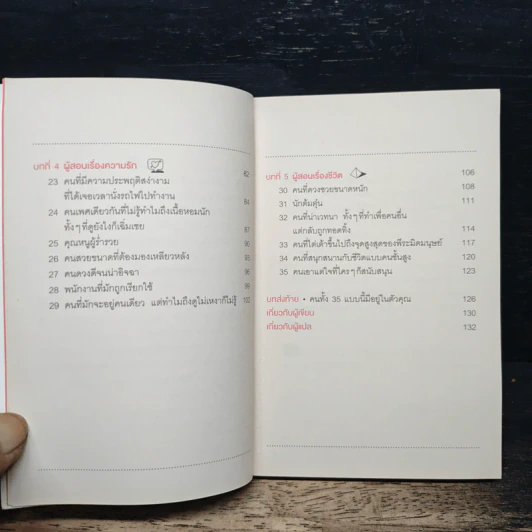 บทที่ 4 ผู้สอนเรื่องความรัก 82
23 คนที่มีความประพฤติสง่างาม
ที่ได้เจอเวลานั่งรถไฟไปทำงาน 84
24 คนเพศเดียวกันที่ไม่รู้ทำไมถึงเนื้อหอมนัก
ทั้งๆ ที่ดูยังไงก็เฉิ่มเชย 87
25 คุณหนูผู้ร่ำรวย 90
26 คนสวยขนาดที่ต้องมองเหลียวหลัง 93
27 คนดวงดีจนน่าอิจฉา 96
28 พนักงานที่มักถูกเรียกใช้ 99
29 คนที่มักจะอยู่คนเดียว แต่ทำไมถึงดูไม่เหงาก็ไม่รู้
บทที่ 5 ผู้สอนเรื่องชีวิต 106
30 คนที่ดวงซวยขนาดหนัก 108
31 นักต้มตุ๋น 111
32 คนที่น่าเวทนา ทั้งๆ ที่ทำเพื่อคนอื่น
แต่กลับถูกทอดทิ้ง 114
33 คนที่ไต่เต้าขึ้นไปถึงจุดสูงสุดของพีระมิดมนุษย์ 117
34 คนที่สนุกสนานกับชีวิตแบบคนชั้นสูง 120
35 คนเอาแต่ใจที่ใครๆ ก็สนับสนุน 123
บทส่งท้าย • คนทั้ง 35 แบบนี้มีอยู่ในตัวคุณ 126
เกี่ยวกับผู้เขียน 130
เกี่ยวกับผู้แปล 132